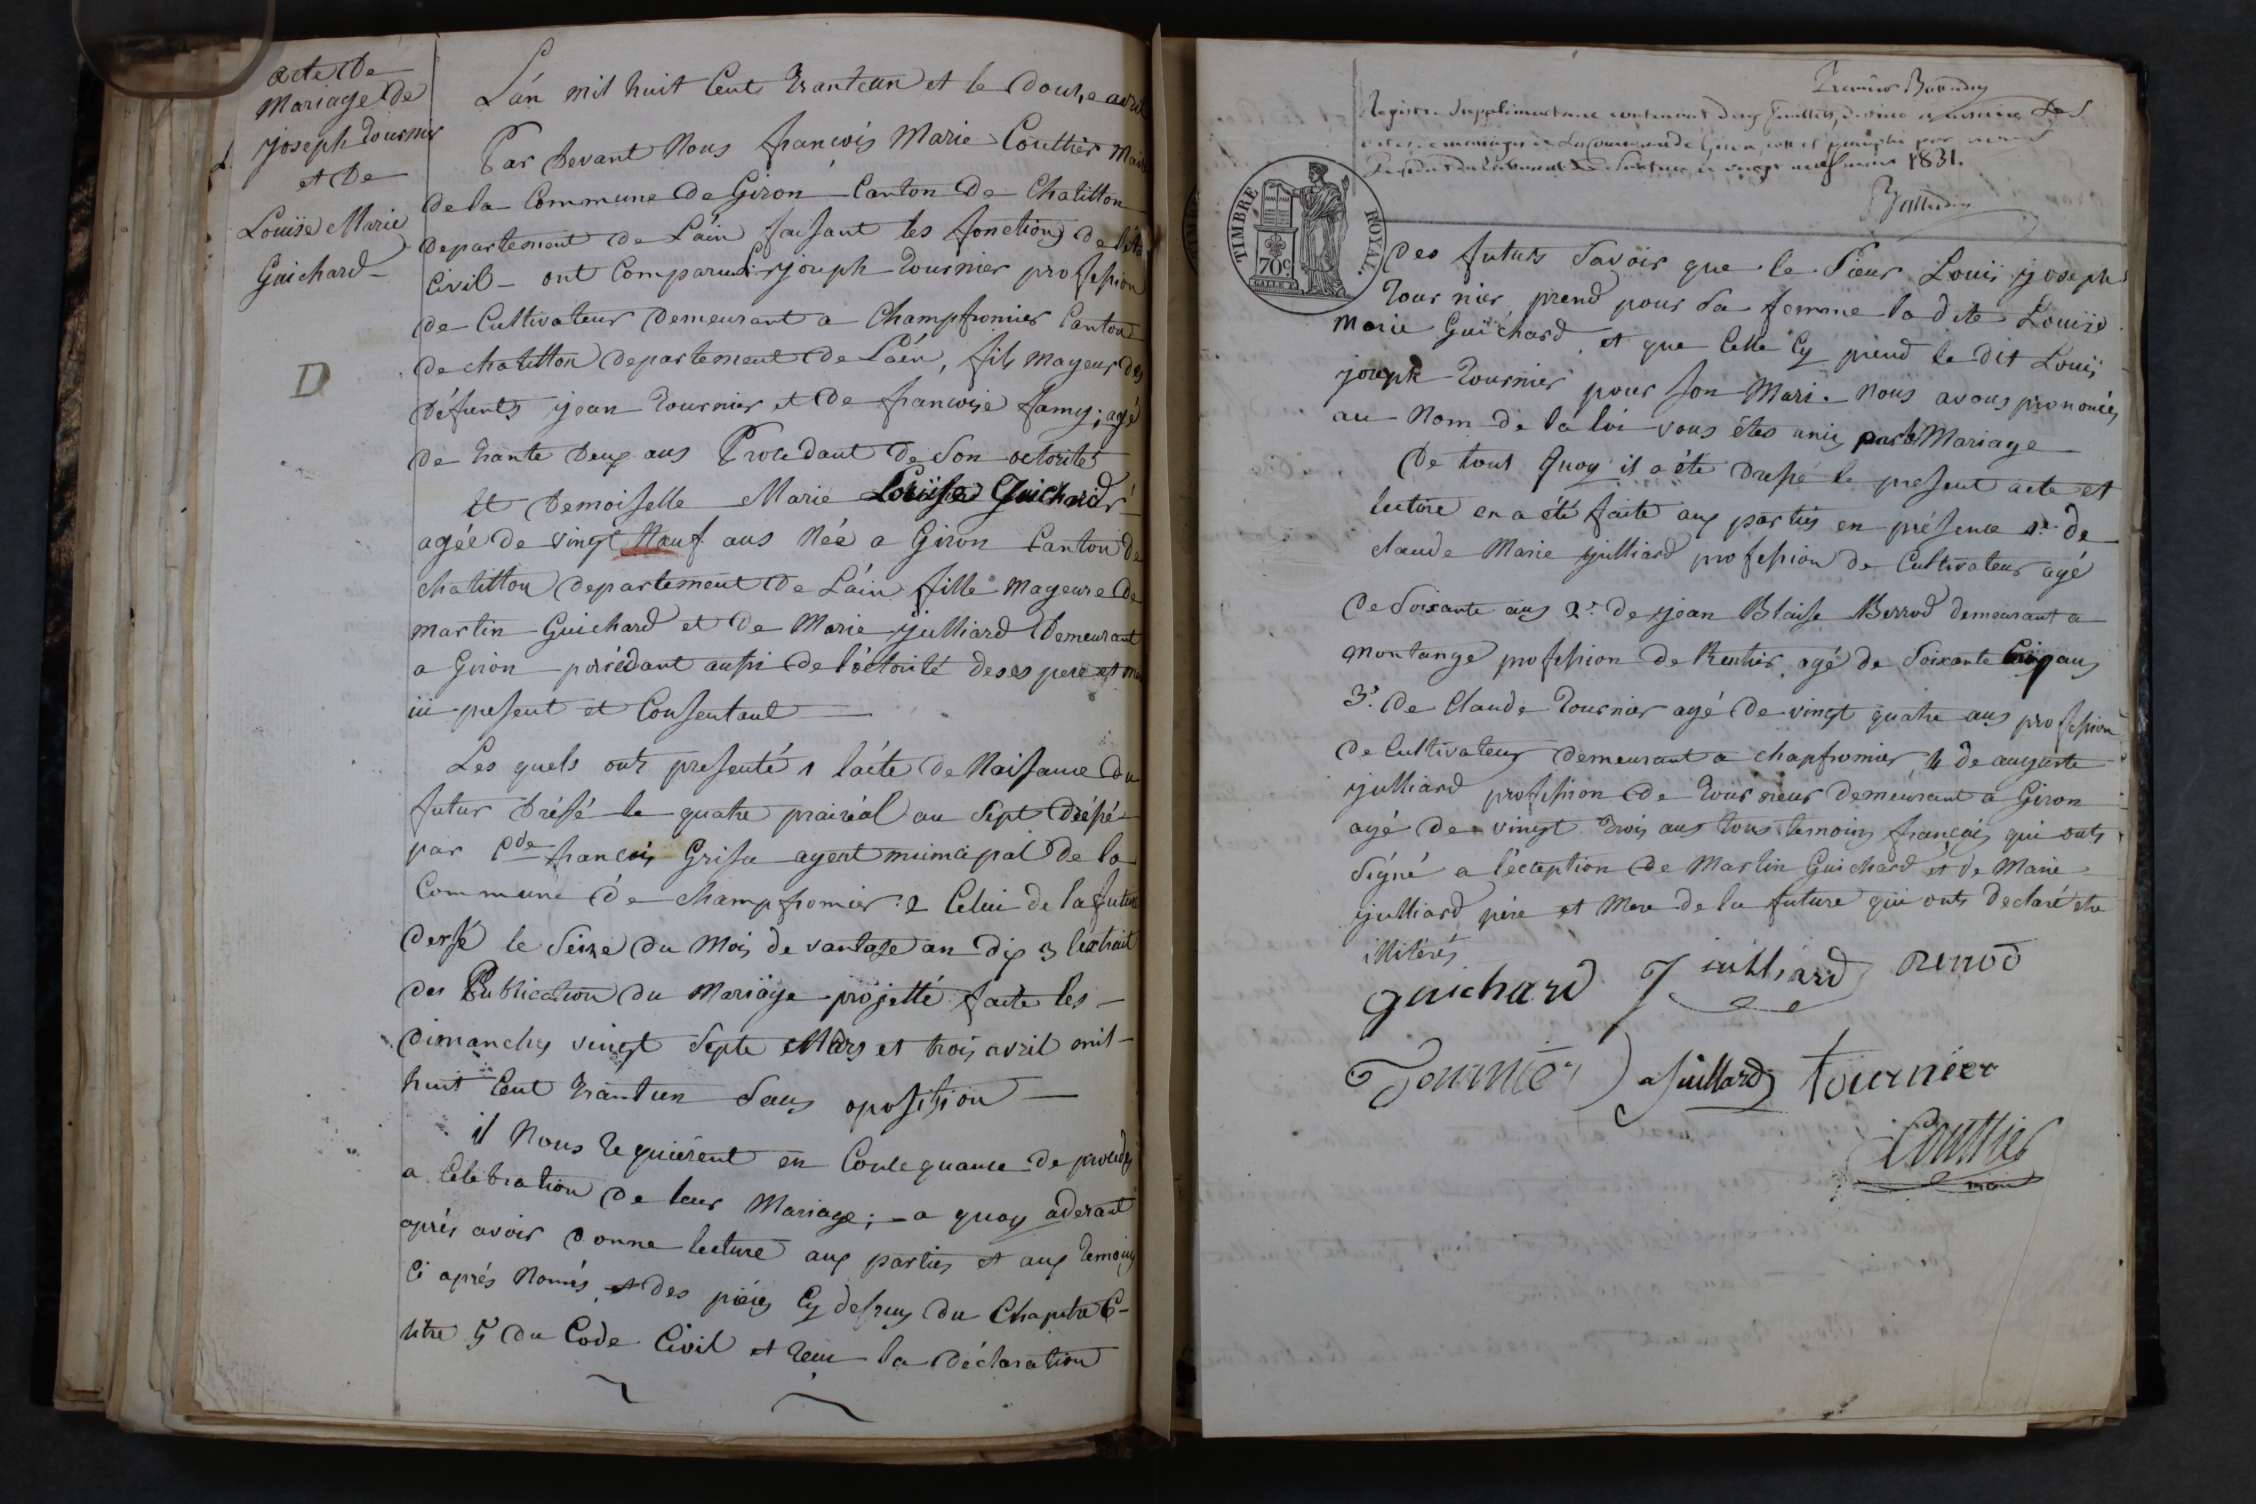 acte De
Mariage De
L. joseph tournier
et De
Louise Marie
Guichard
D
L'an mil huit Cent trantеun et le Douze avril
Par Devant Nous françois Marie Coutthier Maire
de la Commune de Giron Canton De Chatillon
departement de L'ain faisant les fonctions de l'état
Civil - ont Comparu Ls joseph tournier profession
de Cultivateur Demeurant a Champfromier Canton
de chatillon departement de L'ain, fils mageur des
Défunts jean tournier et De francoise famy; agé
de trante Deux ans Procedant de Son octorité
Et Demoiselle Marie Louise Guichard
agée de vingt Neuf ans Née a Giron Canton de
chatillon departement De L'ain fille Mageure de
martin Guichard et de Marie julliard Demeurant
a Giron porcédant aussi de l'octorité de ses pere et mere
ici present et Consentant
Les quels onts presenté 1 l'acte de Naissance du
futur Dréssé le quatre prairéal an Sept Dréssé
par Cde françois Grisa agent municipal De la
Commune de champfromier. 2 Celui de la future
dersé le Seize du Mois de vantose an dix 3 l'extrait
des Publication du Mariage projetté faite les
Dimanches vingt Septe Mars et trois avril mil
huit Cent trantun Sans oposition
il Nous requierent en Consequance de proceder
a Célébration de leur Mariage; - a quoy aderant
aprés avoir Donne lecture aux parties et aux temoins
Ci aprés Només et des piéces Cy dessus du Chapitre 6
titre 5 du Code Civil et reçu la Déclaration
Premier
Registre Supplémentaire contenant deux feuillets, destiné a inscrire Les
actes de mariages de La Commune de Giron, coté et paraphé par nous
Président du tribunal de Nantua, le vingt neuf mars 1831.
TIMBRE ROYAL.
70c
Des futurs Savoir que le Sieur Louis joseph
tournier prend pour Sa femme la dite Louise
Marie Guichard et que Celle Cy prend le Dit Louis
joseph tournier pour Son Mari. Nous avons prononcés
au Nom de la loi vous étes unis par le Mariage
De tout Quoy il a été Dressé le present acte et
lecture en a été faite aux parties en présence 1r. de
claude Marie julliard profession de Cultivateur agé
De Soixante ans 2r. de jean Blaise Berrod demeurant a
Montange profession de Rentier agé de Soixante Cinq ans
3r. De Claude tournier agé De vingt quatre ans profession
De Cultivateur demeurant a chapfromier 4 de auguste
julliard profession De tourneur Demeurant a Giron
agé De vingt trois ans tous temoins françois, qui onts
Signé a l'éception de Martin Guichard et de Marie
julliard pére et Mere de la future qui onts declaré etre
illitérés
guichard J juilliard
Tournier a Juillard tournier
Coutthier
maire